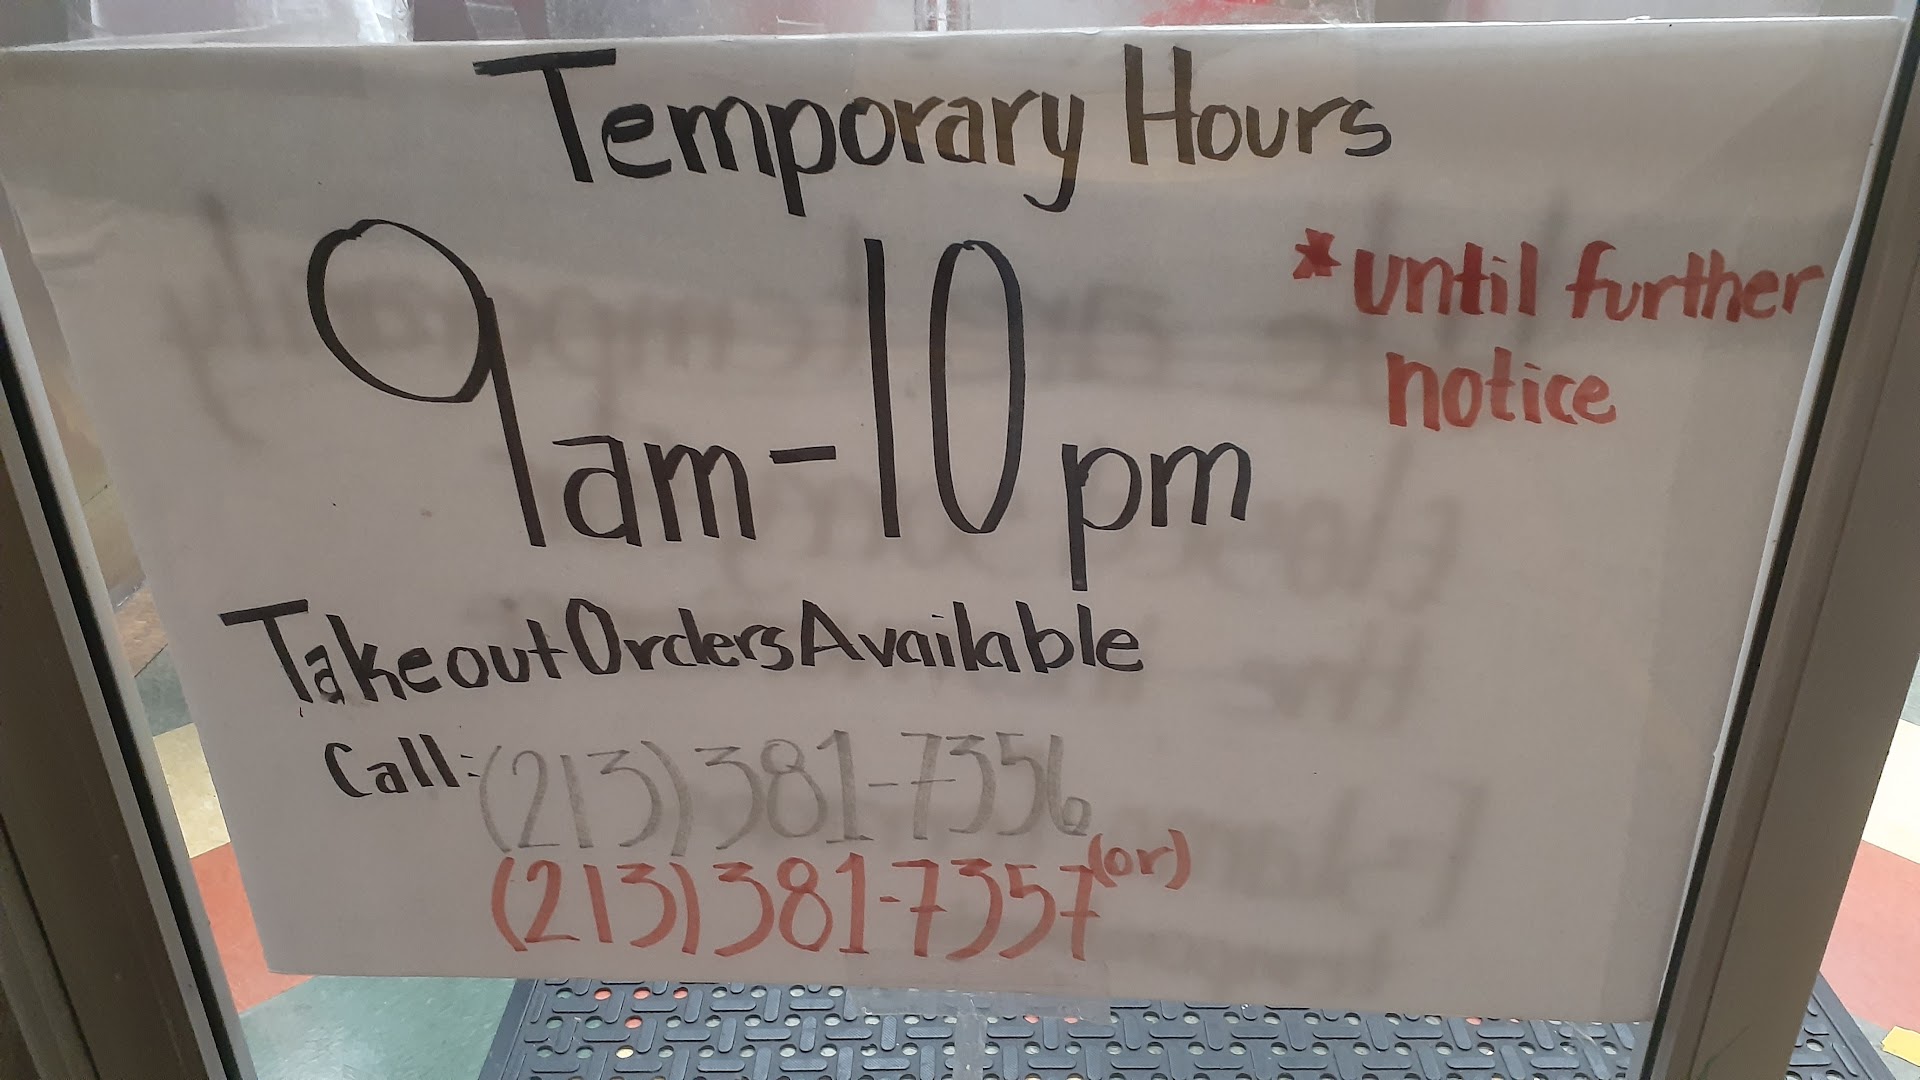 Temporary Hours
9am-10pm
*until further
notice
Takeout Orders Available
Call: (213) 381-7356
(or)
(213) 381-7357